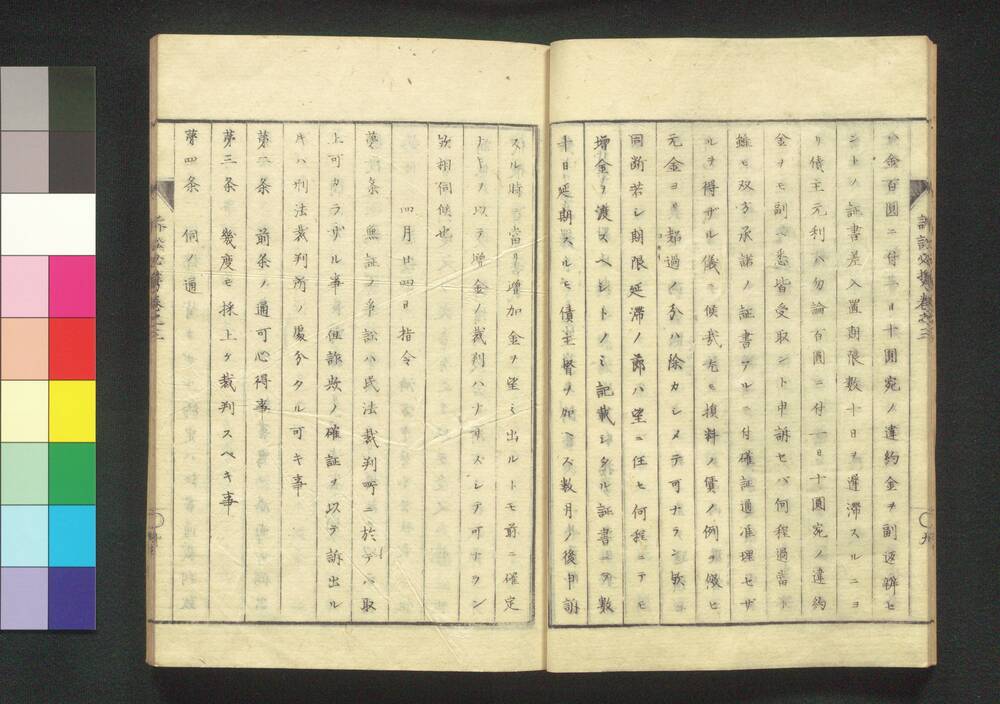 金百圓ニ付一日十圓宛ノ違約金ヲ副返辨セ
ントノ証書差入置期限数十日ヲ遅滞スルニヨ
リ債主元利ハ勿論百圓ニ付一日十圓宛ノ違約
金ヲモ副ヘ悉皆受取ント申訴セバ何程過當ト
雖モ双方承諾ノ証書アルニ付確証通准理セザ
ルヲ得ザル儀ニ候哉左モ損料ノ償ノ例ニ倣ヒ
元金ヨリ超過ノ分ハ除カシメテ可ナラン歟
同断若シ期限延滞ノ節ハ望ニ任セ何程ニテモ
増金ヲ渡スヘシトノミ記載シタル証書ニテ数
十日延期スルモ債主督ヲ加ヘス数月ノ後申訴
訴訟必携巻之三
九
スル時ニ當リ増加金ヲ望ミ出ルトモ前ニ確定
ナキヲ以テ増金ノ裁判ハナサスシテ可ナラン
歟相伺候也
四月廿四日指令
第一条 無証ノ争訟ハ民法裁判所ニ於テハ取
上可カラザル事 但詐欺ノ確証ヲ以テ訴出ル
キハ刑法裁判所ノ處分タル可キ事
第二条 前条ノ通可心得事
第三条 幾度モ採上ケ裁判スベキ事
第四条 伺ノ通